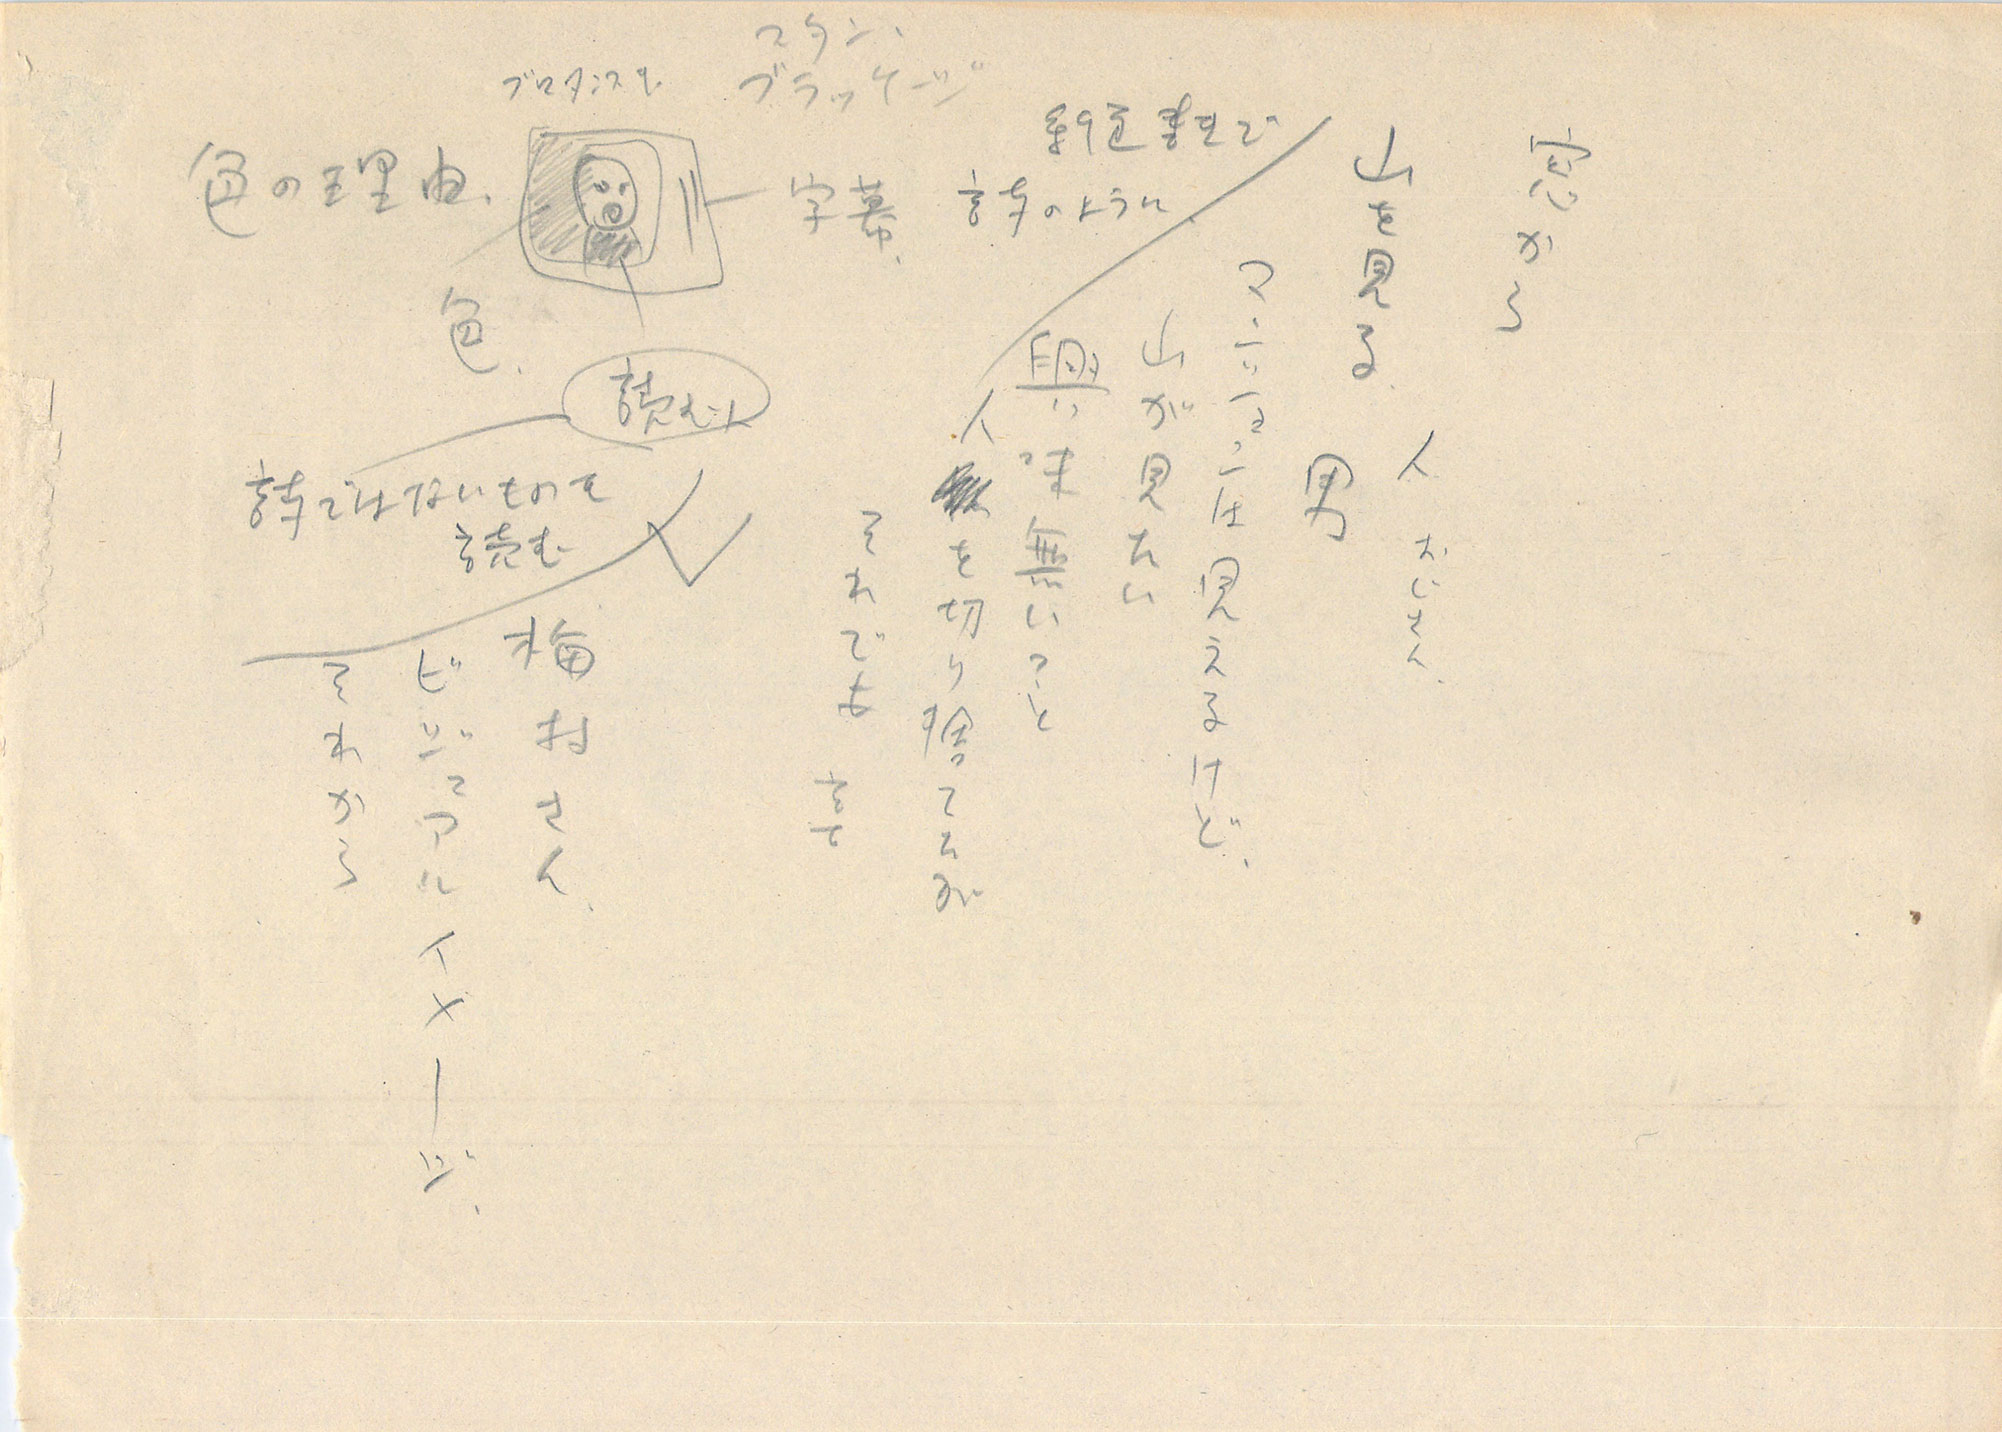 窓から
山を見る
人 おじさん
男
マンションは見えるけど、
山が見たい
興味無いこと
人を切り捨てるが
それでも
スタン・
ブラッケージ
まで
詩のように
字幕
色の理由、
色、
読む人
詩ではないものを
読む
梅村さん、
ビジュアルイメージ、
それから